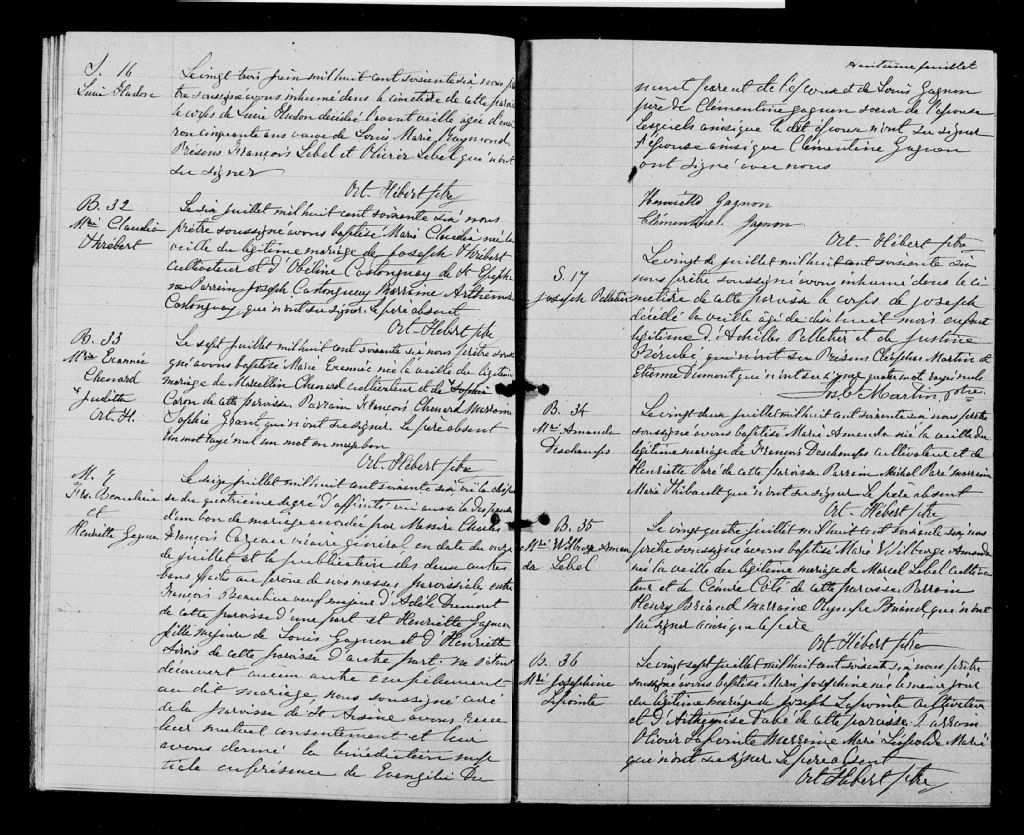 S. 16
Luce Hudon
Le vingt trois juin mil huit cent soixante six nous prê
tre soussigné avons inhumé dans le cimetière de cette paroisse
le corps de Luce Hudon décédée l'avant veille agée d'envi
ron cinquante ans veuve de Louis Marie Raymond
Présens François Lebel et Olivier Lebel qui n'ont
su signer
Oct. Hébert ptre
B. 32
Mrie Claudia
Thrébert
Le six juillet mil huit cent soixante six nous
prêtre soussigné avons baptisé Marie Claudia née la
veille du légitime mariage de Joseph Thrébert
cultivateur et d'Obéline Castonguay de St Epipha
ne Parrain Joseph Castonguay Marraine Arthémise
Castonguay, qui n'ont su signer. Le père absent
Oct. Hébert ptre
B. 33
Mrie
Chenard
Judith
Oct. H.
Le sept juillet mil huit cent soixante six nous prêtre sous
signé avons baptisé Marie née la veille du légitime
mariage de Marcellin Chenard cultivateur et de Sophie
Caron de cette paroisse. Parrain François Chenard Marraine
Sophie Grant qui n'ont su signer. Le père absent
Un mot rayé nul un mot en marge bon
Oct. Hébert ptre
M. 7
Frs. Beaulieu
et
Henriette Gagnon
Le seize juillet mil huit cent soixante six vu la dispen
se du quatrième degré d'affinité vu aussi la dispense
d'un bon de mariage accordée par Messire Charles
François Cazeau vicaire général en date du onze
de juillet et la publication des deux autres
bans faite au prône de nos messes paroissiales entre
François Beaulieu veuf majeur d'Adèle Dumont
de cette paroisse d'une part et Henriette Gagnon
fille majeure de Louis Gagnon et d'Henriette
Sirois de cette paroisse d'autre part. ne s'étant
découvert aucun autre empêchement
au dit mariage nous soussigné curé
de la paroisse de St Arsène avons reçu
leur mutuel consentement et leur
avons donné la bénédiction nup
tiale en présence de Evangéliste Du
Huitième feuillet
mont parent de l'époux et de Louis Gagnon
père de Clémentine Gagnon soeur de l'épouse
lesquels ainsi que le dit époux n'ont su signer
l'épouse ainsi que Clémentine Gagnon
ont signé avec nous
Henriette Gagnon
Clémentine Gagnon
Oct. Hébert ptre
S. 17
Joseph Pelletier
Le vingt de juillet mil huit cent soixante six
nous prêtre soussigné avons inhumé dans le ci
metière de cette paroisse le corps de Joseph
décédé la veille agé de dix huit mois enfant
légitime d'Achilles Pelletier et de Justine
Bérubé, qui n'ont su Présens Cléophas Martin et
Etienne Dumont qui n'ont su signer quatre mots rayés nuls
Jos. Martin, ptre
B. 34
Mrie Amanda
Deschamps
Le vingt deux juillet mil huit cent soixante six nous prêtre
soussigné avons baptisé Marie Amanda née la veille du
légitime mariage de François Deschamps cultivateur et de
Henriette Paré de cette paroisse Parrain Michel Paré marraine
Marie Thibault qui n'ont su signer Le père absent
Oct. Hébert ptre
B. 35
Mrie Wilberge Aman
da Lebel
Le vingt quatre juillet mil huit cent soixante six nous
prêtre soussigné avons baptisé Marie Wilberge Amanda
née la veille du légitime mariage de Marcel Lebel cultiva
teur et de Césaire Côté de cette paroisse Parrain
Henry Briand marraine Olympe Briand, qui n'ont
su signer ainsi que le père
Oct. Hébert ptre
B. 36
Mrie Josephine
Lapointe
Le vingt sept juillet mil huit cent soixante six nous prêtre
soussigné avons baptisé Marie Josephine née le même jour
du légitime mariage de Joseph Lapointe cultivateur
et d'Arthémise Dubé de cette paroisse. Parrain
Olivier Lapointe Marraine Marie Léopolde Marié
qui n'ont su signer Le père absent
Oct Hébert ptre